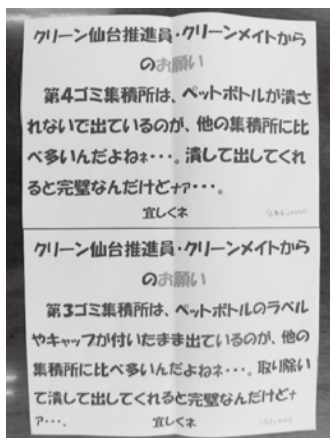 クリーン仙台推進員・クリーンメイトから
のお願い
第4ゴミ集積所は、ペットボトルが潰さ
れないで出ているのが、他の集積所に比
べ多いんだよねネ・・・。潰して出してくれ
ると完璧なんだけどナァ・・・。
宜しくネ
クリーン仙台推進員・クリーンメイトから
のお願い
第3ゴミ集積所は、ペットボトルのラベル
やキャップが付いたまま出ているのが、他の
集積所に比べ多いんだよねネ・・・。取り除い
て潰して出してくれると完璧なんだけどナ
ァ・・・。 宜しくネ